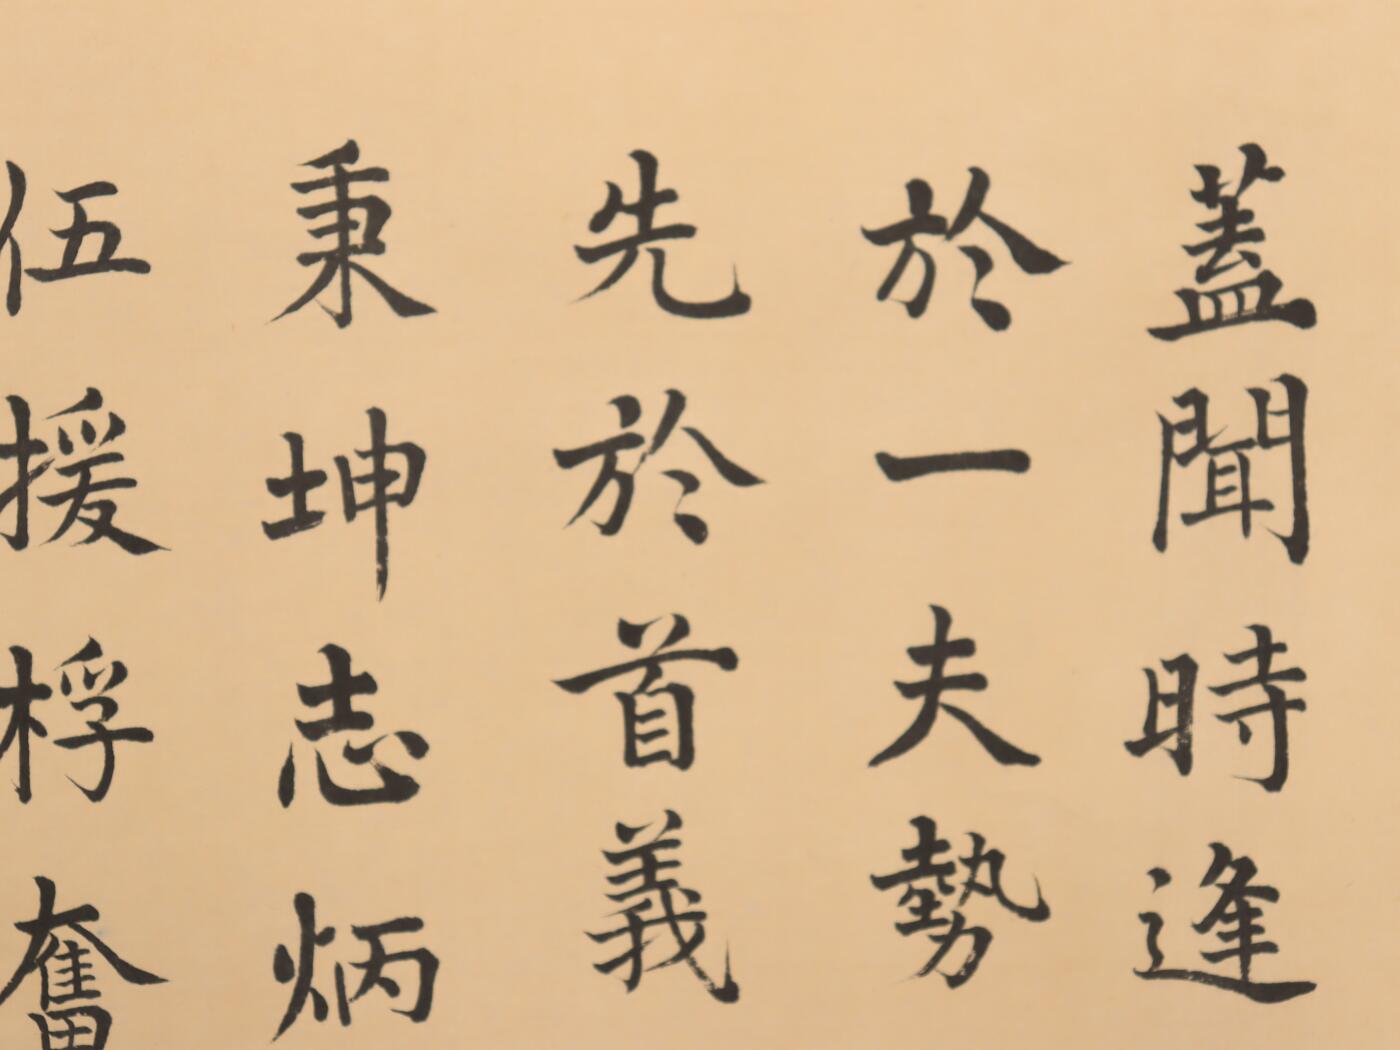 蓋聞時逢
於一夫勢
先於首義
秉坤志炳
伍援桴奮